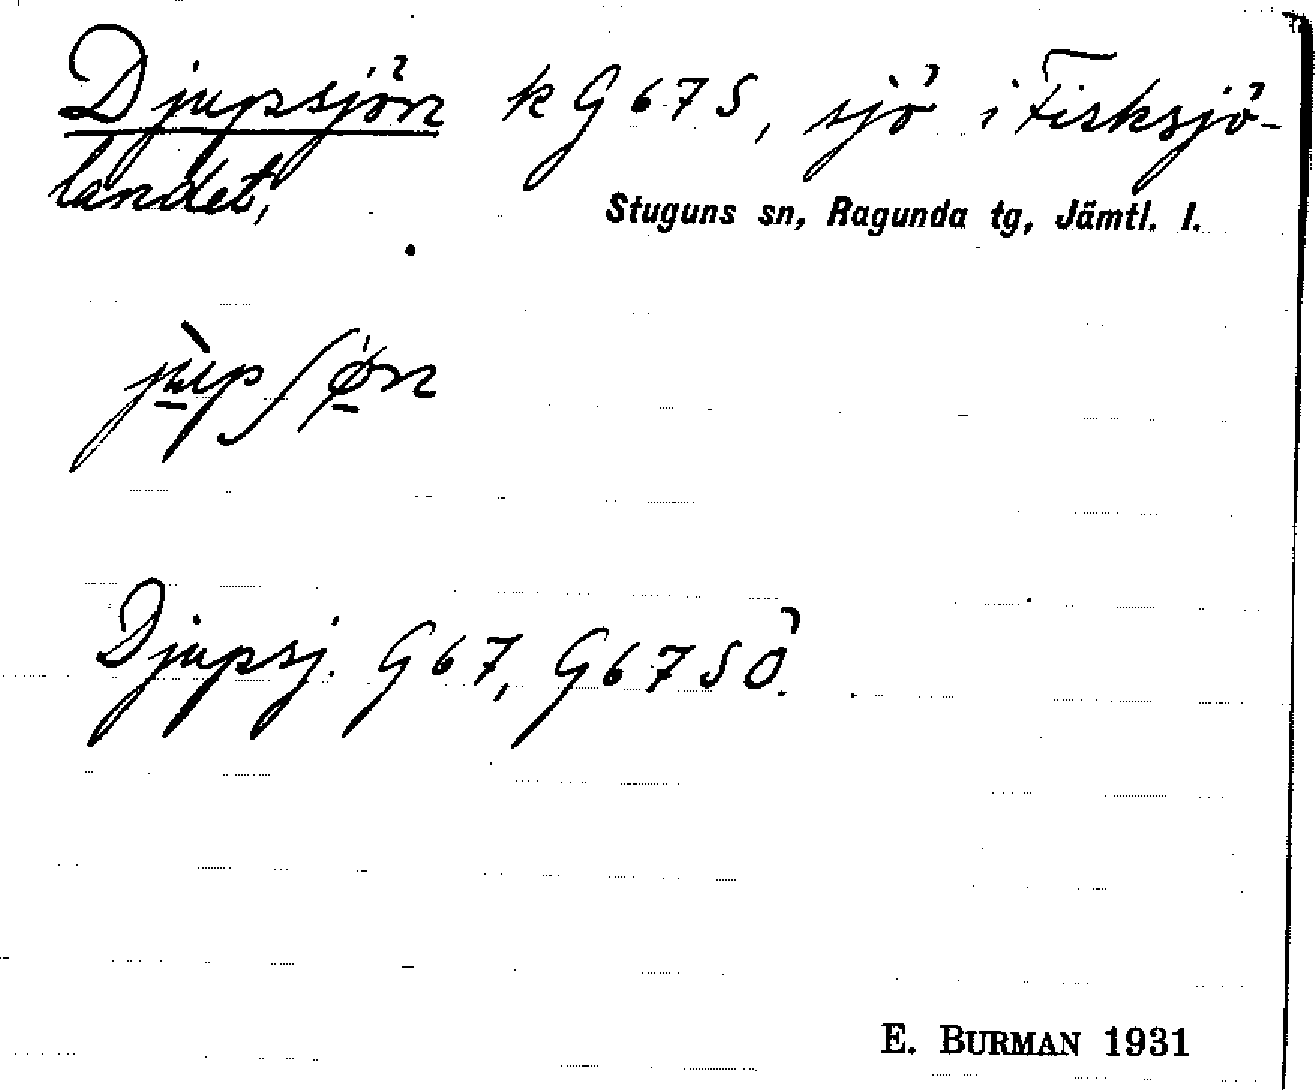 Djupsjön k G 67 S, sjö i Fisksjö-
landet,
Stuguns sn, Ragunda tg, Jämtl. l.
jùpʃøn
Djupsj. G 67, G 67 S Ö.
E. BURMAN 1931